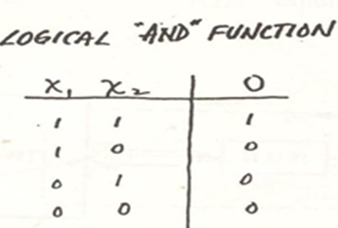 LOGICAL "AND" FUNCTION
X₁ X₂ O
1 1 1
1 0 0
0 1 0
0 0 0